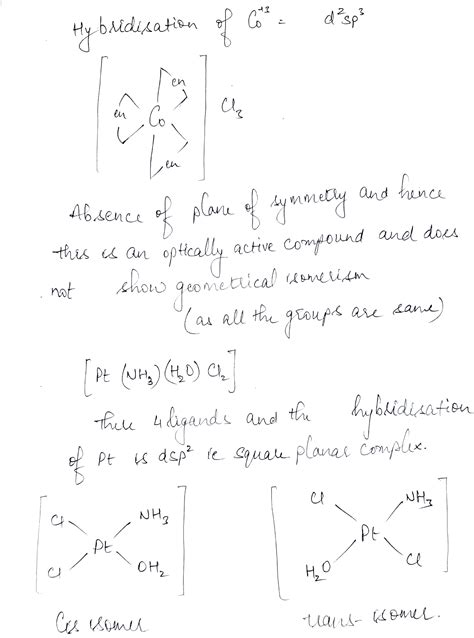 Hybridisation of Co⁺³ = d²sp³
en
en Co Cl₃
en
Absence of plane of symmetry and hence
this is an optically active compound and does
not show geometrical isomerism
(as all the groups are same)
[Pt (NH₃) (H₂O) Cl₂]
There 4 ligands and the hybridisation
of Pt is dsp² ie square planar complex.
Cl NH₃ Cl NH₃
Pt Pt
Cl OH₂ H₂O Cl
Cis isomer trans-isomer.